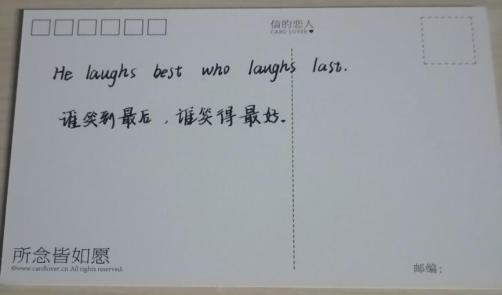 信的恋人
CARD LOVER♥
He laughs best who laughs last.
谁笑到最后，谁笑得最好。
所念皆如愿
©www.cardlover.cn All rights reserved.
邮编：